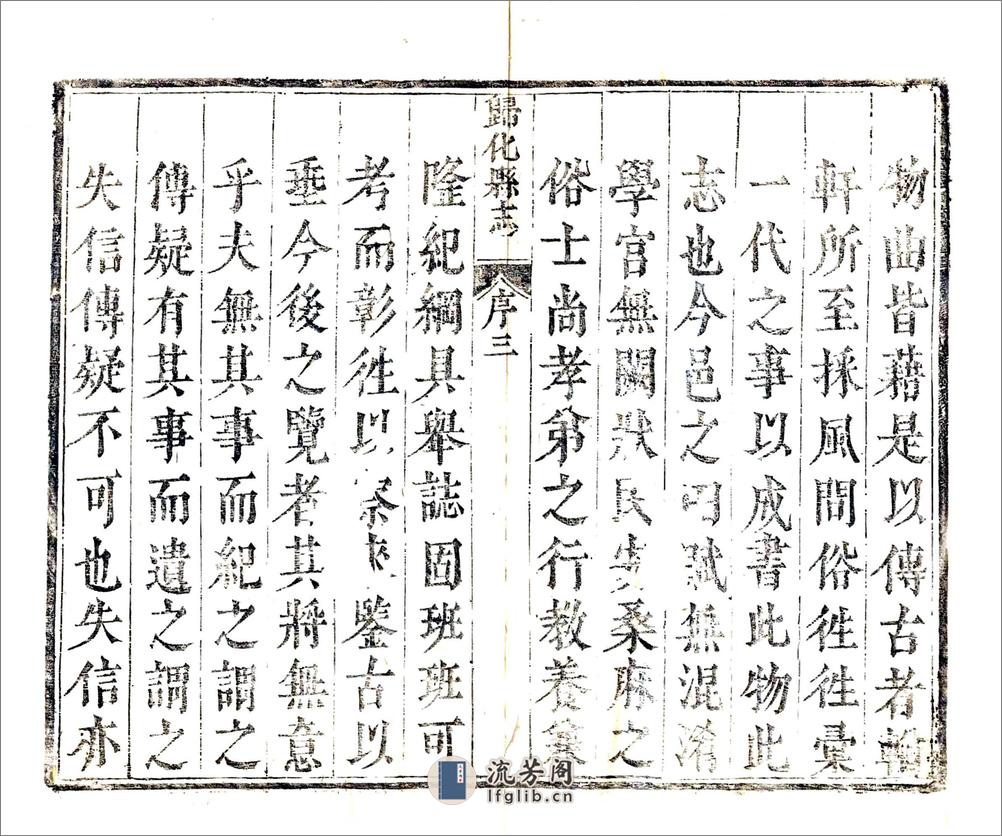 物曲皆藉是以傳古者輶
軒所至採風問俗徃徃彚
一代之事以成書此物此
志也今邑之 賦無混淆
學宫無闕 民 桑麻之
俗士尚孝弟之行教養兼
歸化縣志 序 三
隆紀綱具舉誌固班班可
考而彰徃以察来鑒古以
垂今後之覽者其將無意
乎夫無其事而紀之謂之
傳疑有其事而遺之謂之
失信傳疑不可也失信亦
流芳阁
lfglib.cn